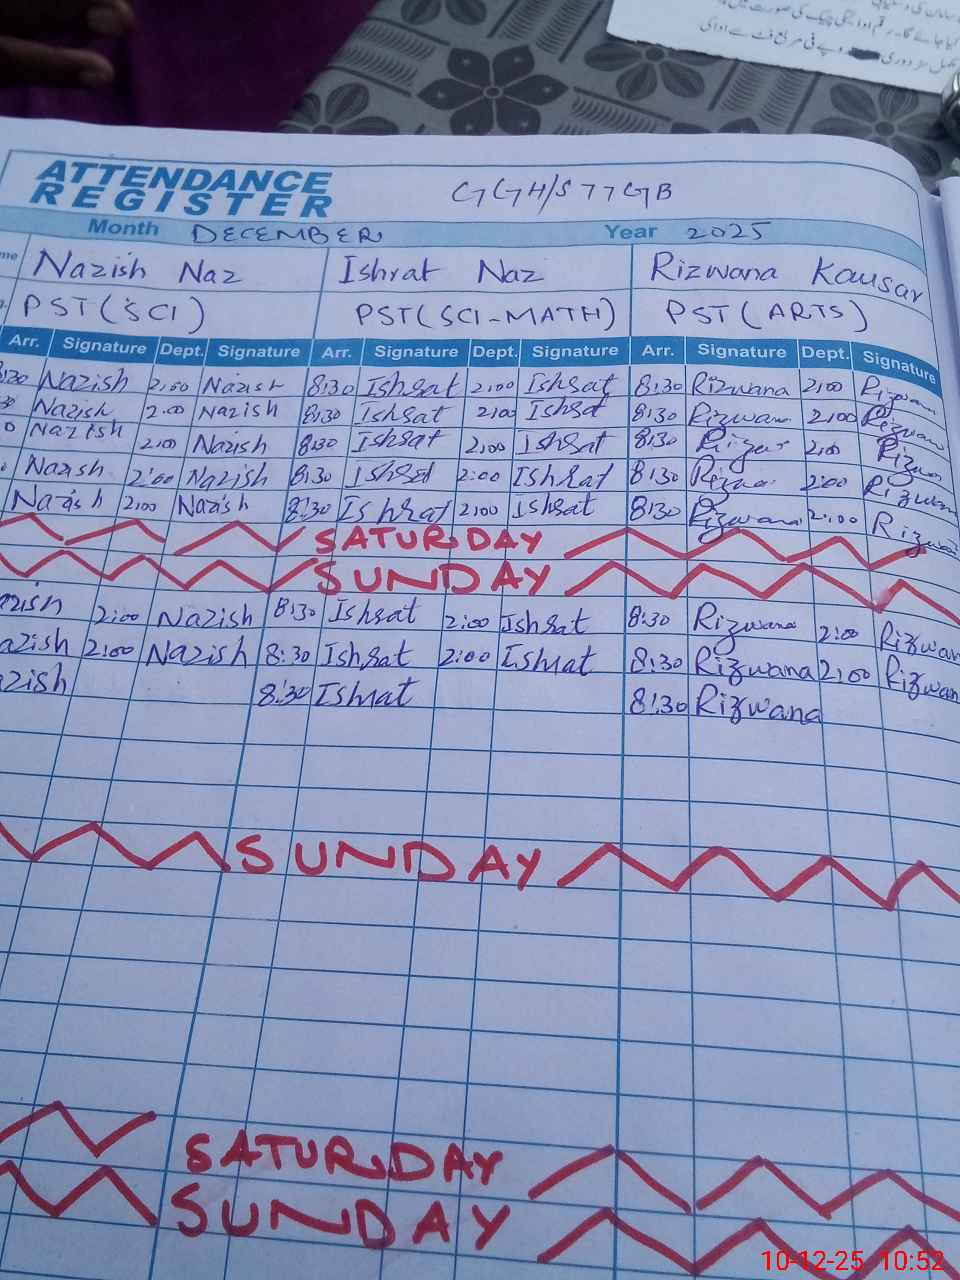 سامان کی
کیا جائے گا۔ رقم ادائیگی چیک کی صورت میں
مکمل مزدوری روپے فی مربع فٹ سے ادا کی
ATTENDANCE
REGISTER
GGH/S 77 GB
Month DECEMBER Year 2025
me Nazish Naz Ishrat Naz Rizwana Kausar
PST (SCI) PST (SCI-MATH) PST (ARTS)
Arr. Signature Dept. Signature Arr. Signature Dept. Signature Arr. Signature Dept. Signature
8:30 Nazish 2:00 Nazish 8:30 Ishrat 2:00 Ishrat 8:30 Rizwana 2:00 Rizwana
30 Nazish 2:00 Nazish 8:30 Ishrat 2:00 Ishrat 8:30 Rizwana 2:00 Rizwana
0 Nazish 2:00 Nazish 8:30 Ishrat 2:00 Ishrat 8:30 Rizwana 2:00 Rizwana
Nazish 2:00 Nazish 8:30 Ishrat 2:00 Ishrat 8:30 Rizwana 2:00 Rizwana
Nazish 2:00 Nazish 8:30 Ishrat 2:00 Ishrat 8:30 Rizwana 2:00 Rizwana
SATURDAY
SUNDAY
azish 2:00 Nazish 8:30 Ishrat 2:00 Ishrat 8:30 Rizwana 2:00 Rizwan
azish 2:00 Nazish 8:30 Ishrat 2:00 Ishrat 8:30 Rizwana 2:00 Rizwan
zish 8:30 Ishrat 8:30 Rizwana
SUNDAY
SATURDAY
SUNDAY
10-12-25 10:52